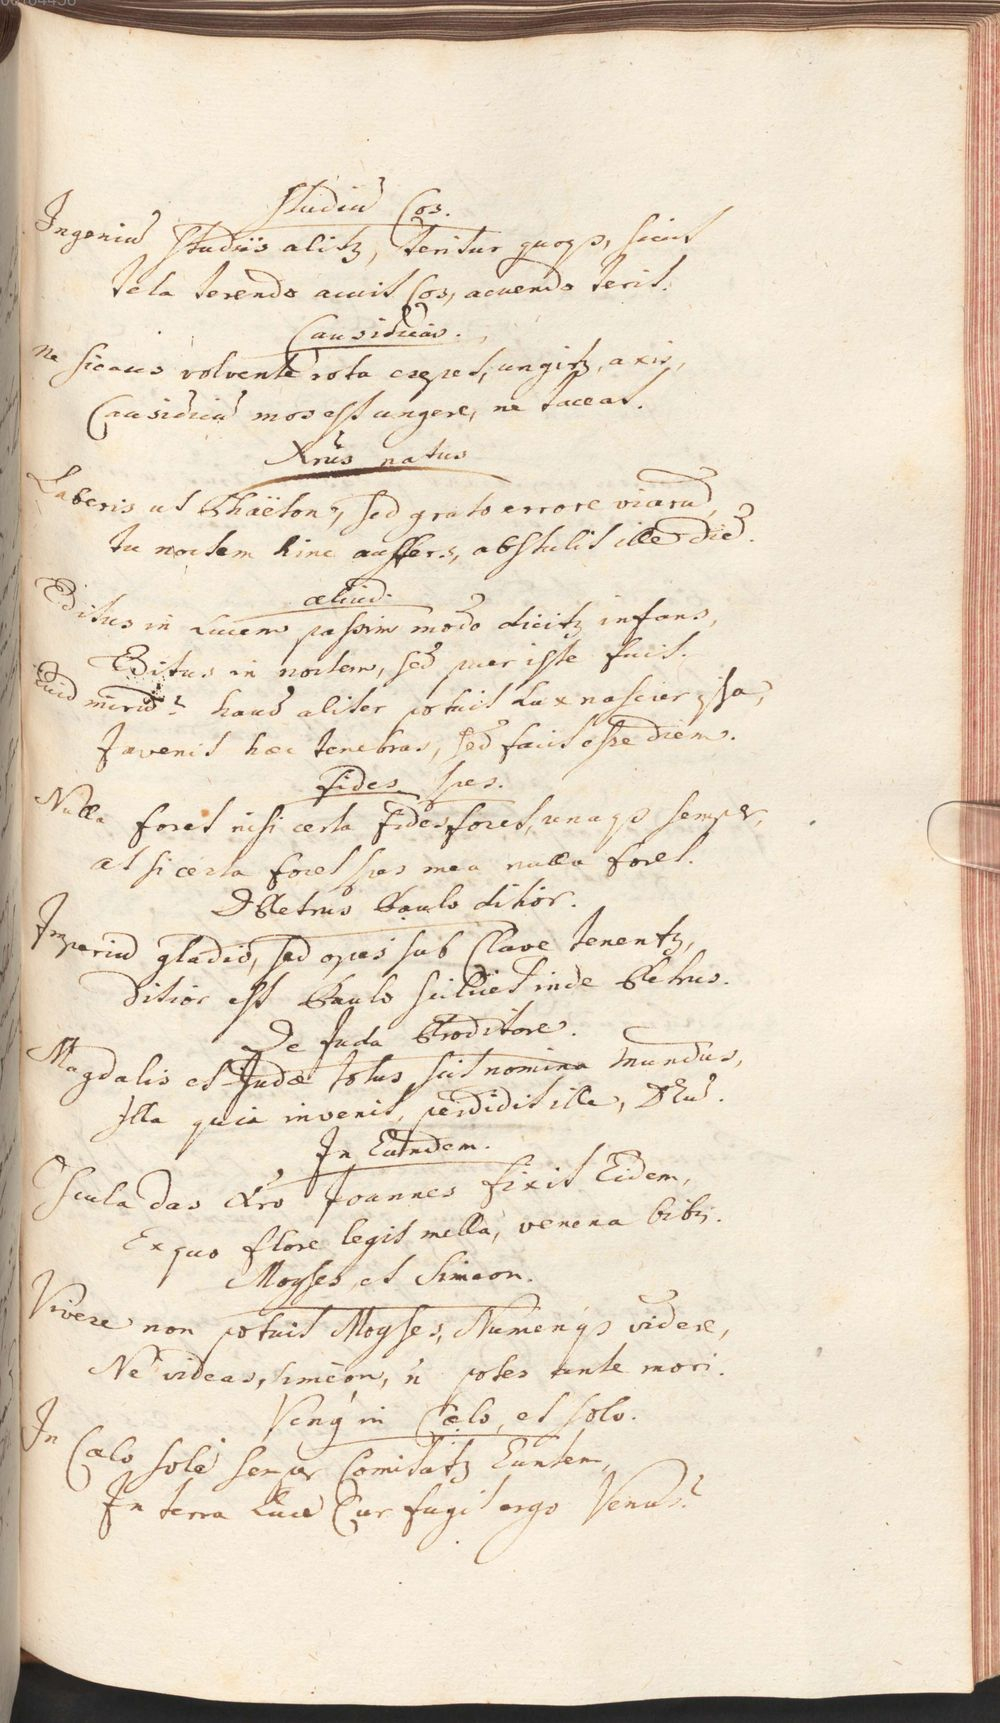 Studiū Cos.
Ingeniū studiis alitꝫ, teritur quoqꝫ, sicut
tela terendo acuit Cos, acuendo terit.
Causidicus.
Ne siccus volvente rota crepet, ungitꝫ, axis,
Causidicū mos est ungere, ne taceat.
Xrūs natus
Laberis ut Phaëton, sed grato errore viarū,
Tu noctem hinc auffers, abstulit ille diē.
aliud.
Editus in Lucem passim modo dicitꝫ infans,
Editus in noctem, sed puer iste fuit.
Quid mirū? haud aliter potuit Lux nascier ipsa,
Invenit haec tenebras, sed facit esse diem.
Fides, spes.
Nulla foret nisi certa fides foret, unaqꝫ semper,
at si certa foret spes mea nulla foret.
D Petrus Paulo ditior.
Imperiū gladio, sed opes sub Clave tenentꝫ,
Ditior est Paulo scilicet inde Petrus.
De Juda Proditore.
Magdalis et Judæ totus scit nomina mundus,
Illa quia invenit, perdidit ille, DEū.
In Eundem.
Oscula das Xro Joannes fixit Eidem,
Ex quo flore legit mella, venena bibis.
Moyses, et Simeon.
Vivere non potuit Moyses, Numenqꝫ videre,
Ne videas, simeon, n̄ potes ante mori.
Venꝰ in Cælo, et solo.
In Cælo solē semper Comitatꝫ Euntem,
In terra Lucē Cur fugit ergo Venus?